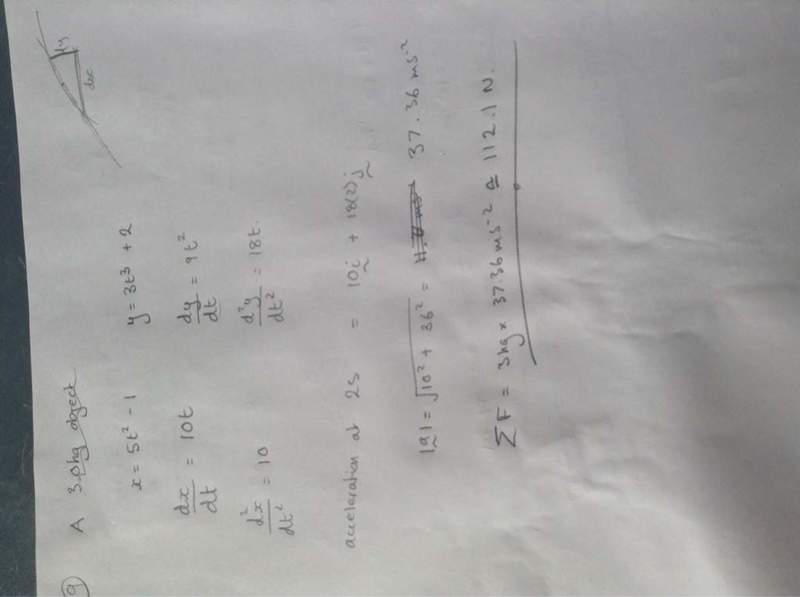 9) A 3.0kg object
x = 5t² - 1 y = 3t³ + 2
dx/dt = 10t dy/dt = 9t²
d²x/dt² = 10 d²y/dt² = 18t.
dy
dx
acceleration at 2s = 10i + 18(2)j
|a| = √(10² + 36²) = 37.36 ms⁻²
ΣF = 3kg × 37.36 ms⁻² ≏ 112.1 N.